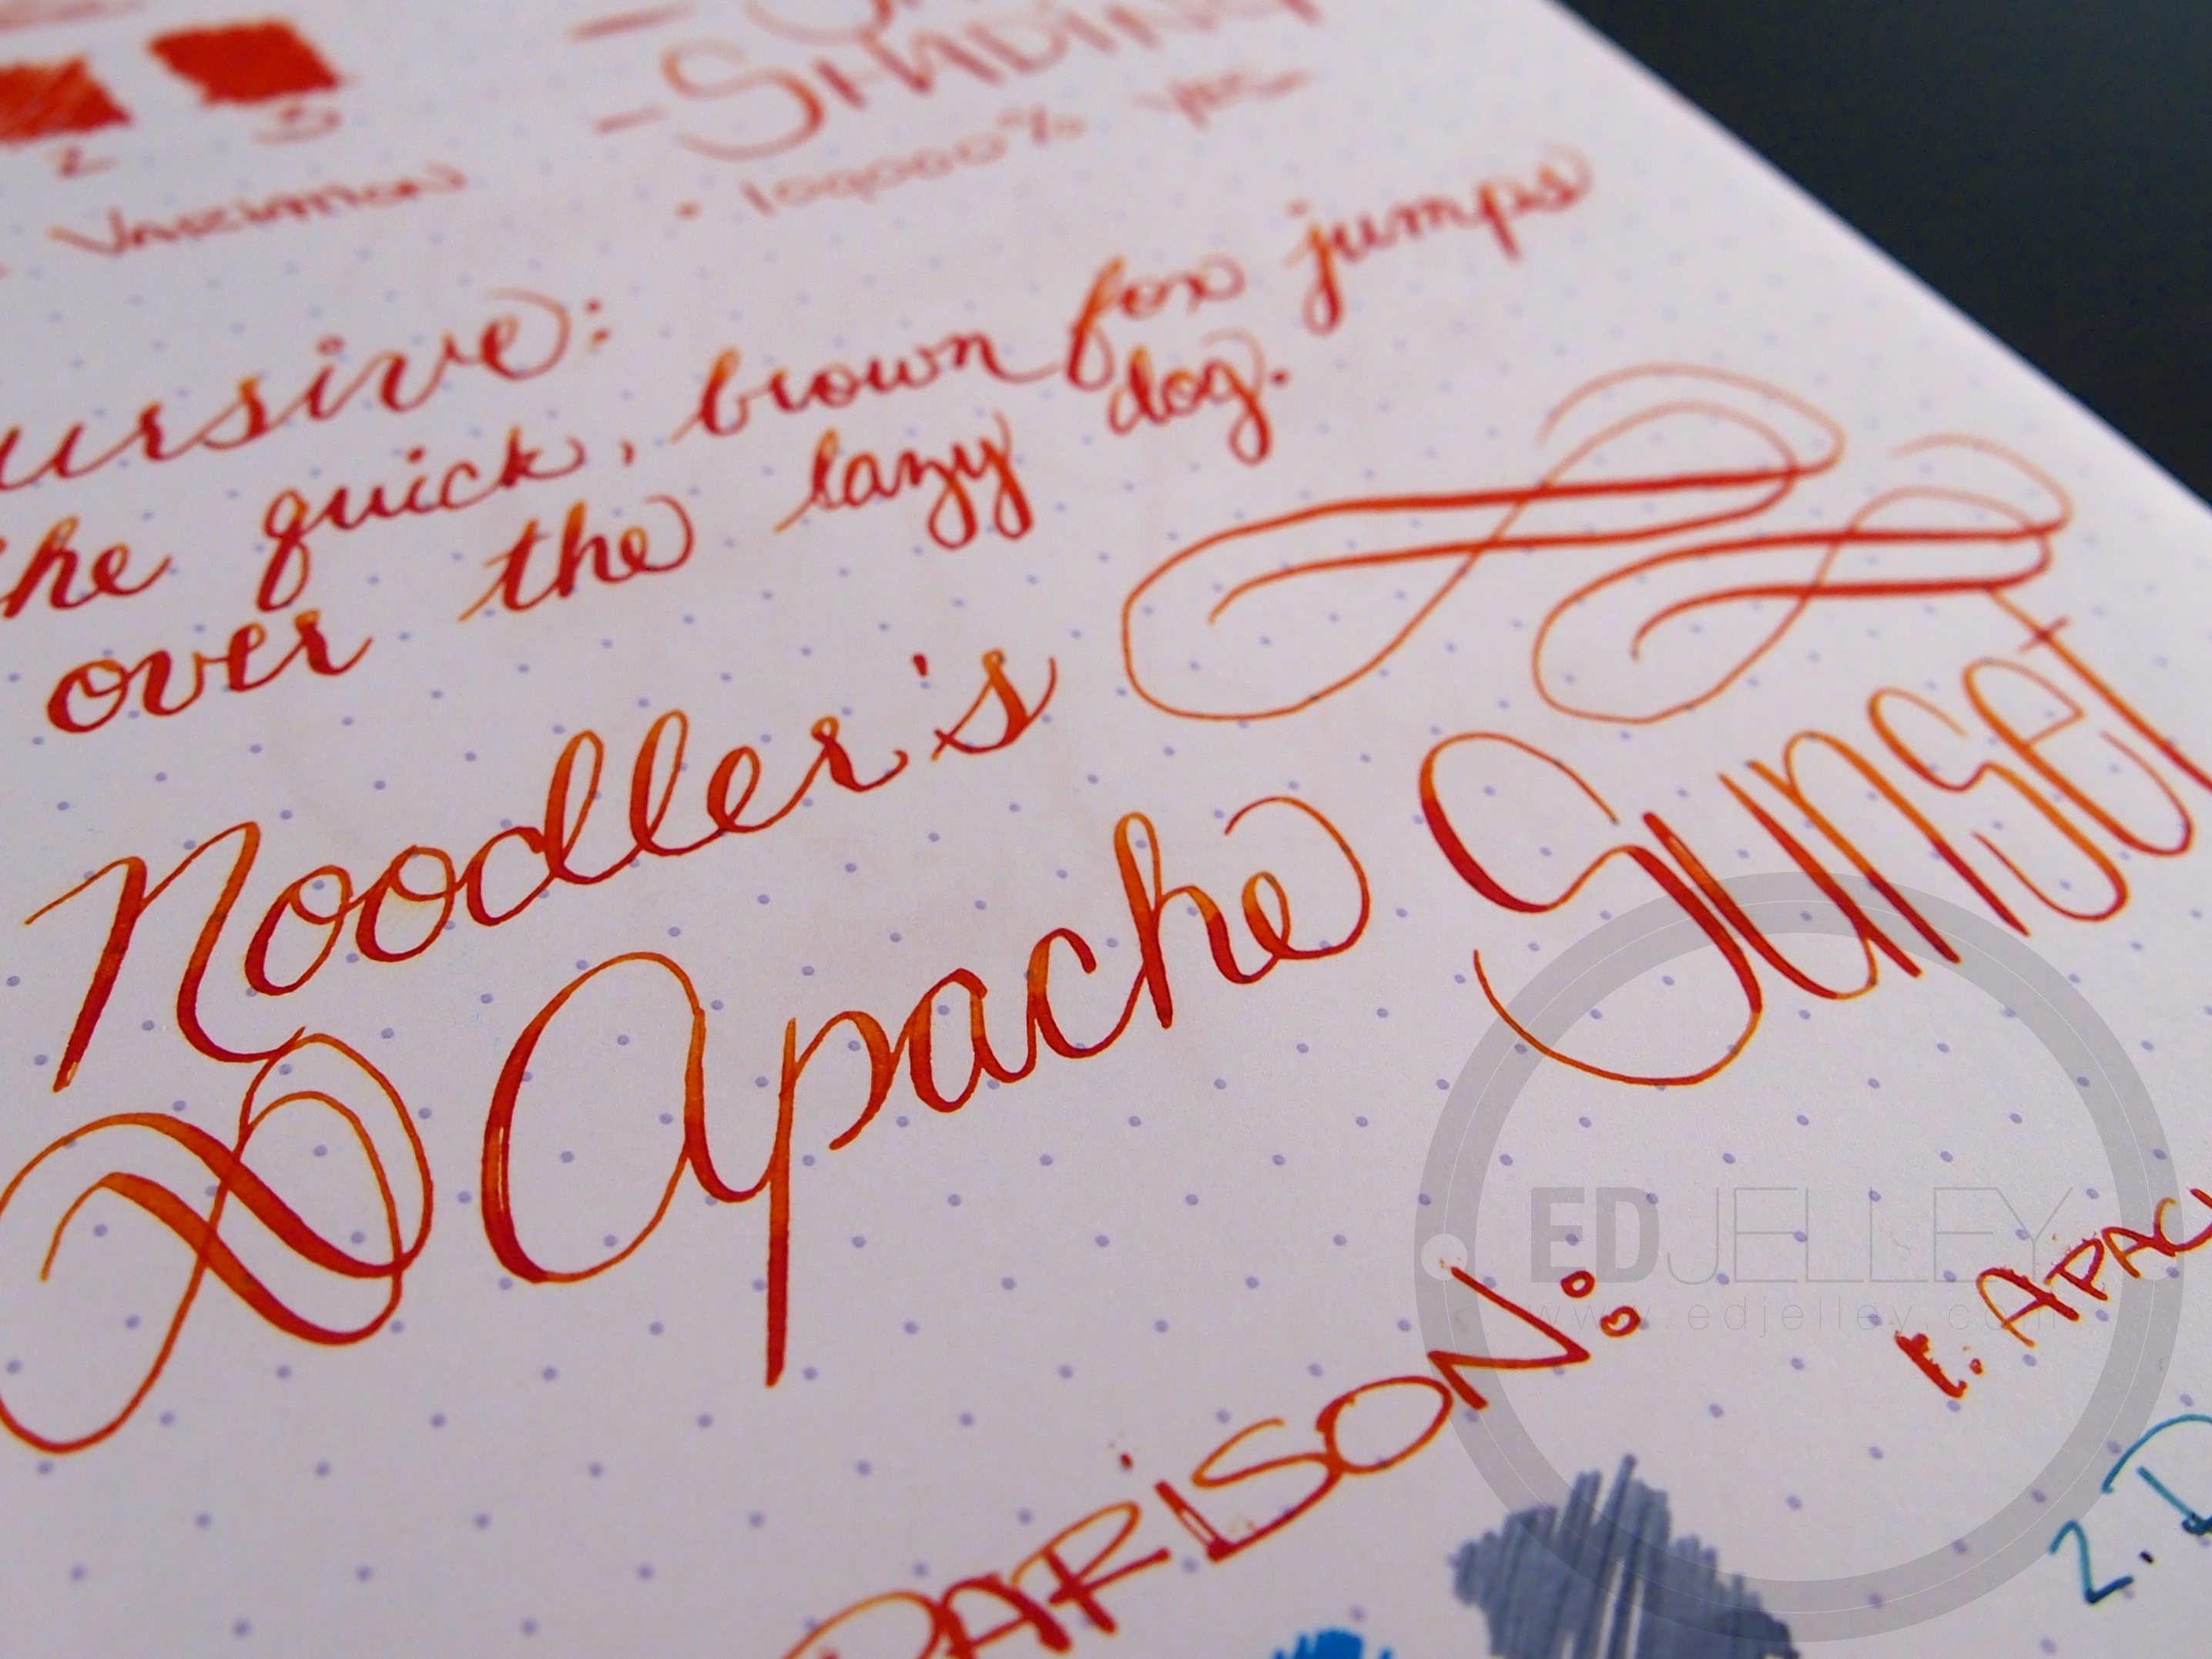 SHADING
2 3
VARIATION
• 100,000% YES
ursive:
he quick, brown fox jumps
over the lazy dog.
Noodler's
Apache Sunset
EDJELLEY
www.edjelley.com
PARISON:
1. APAC
2. D